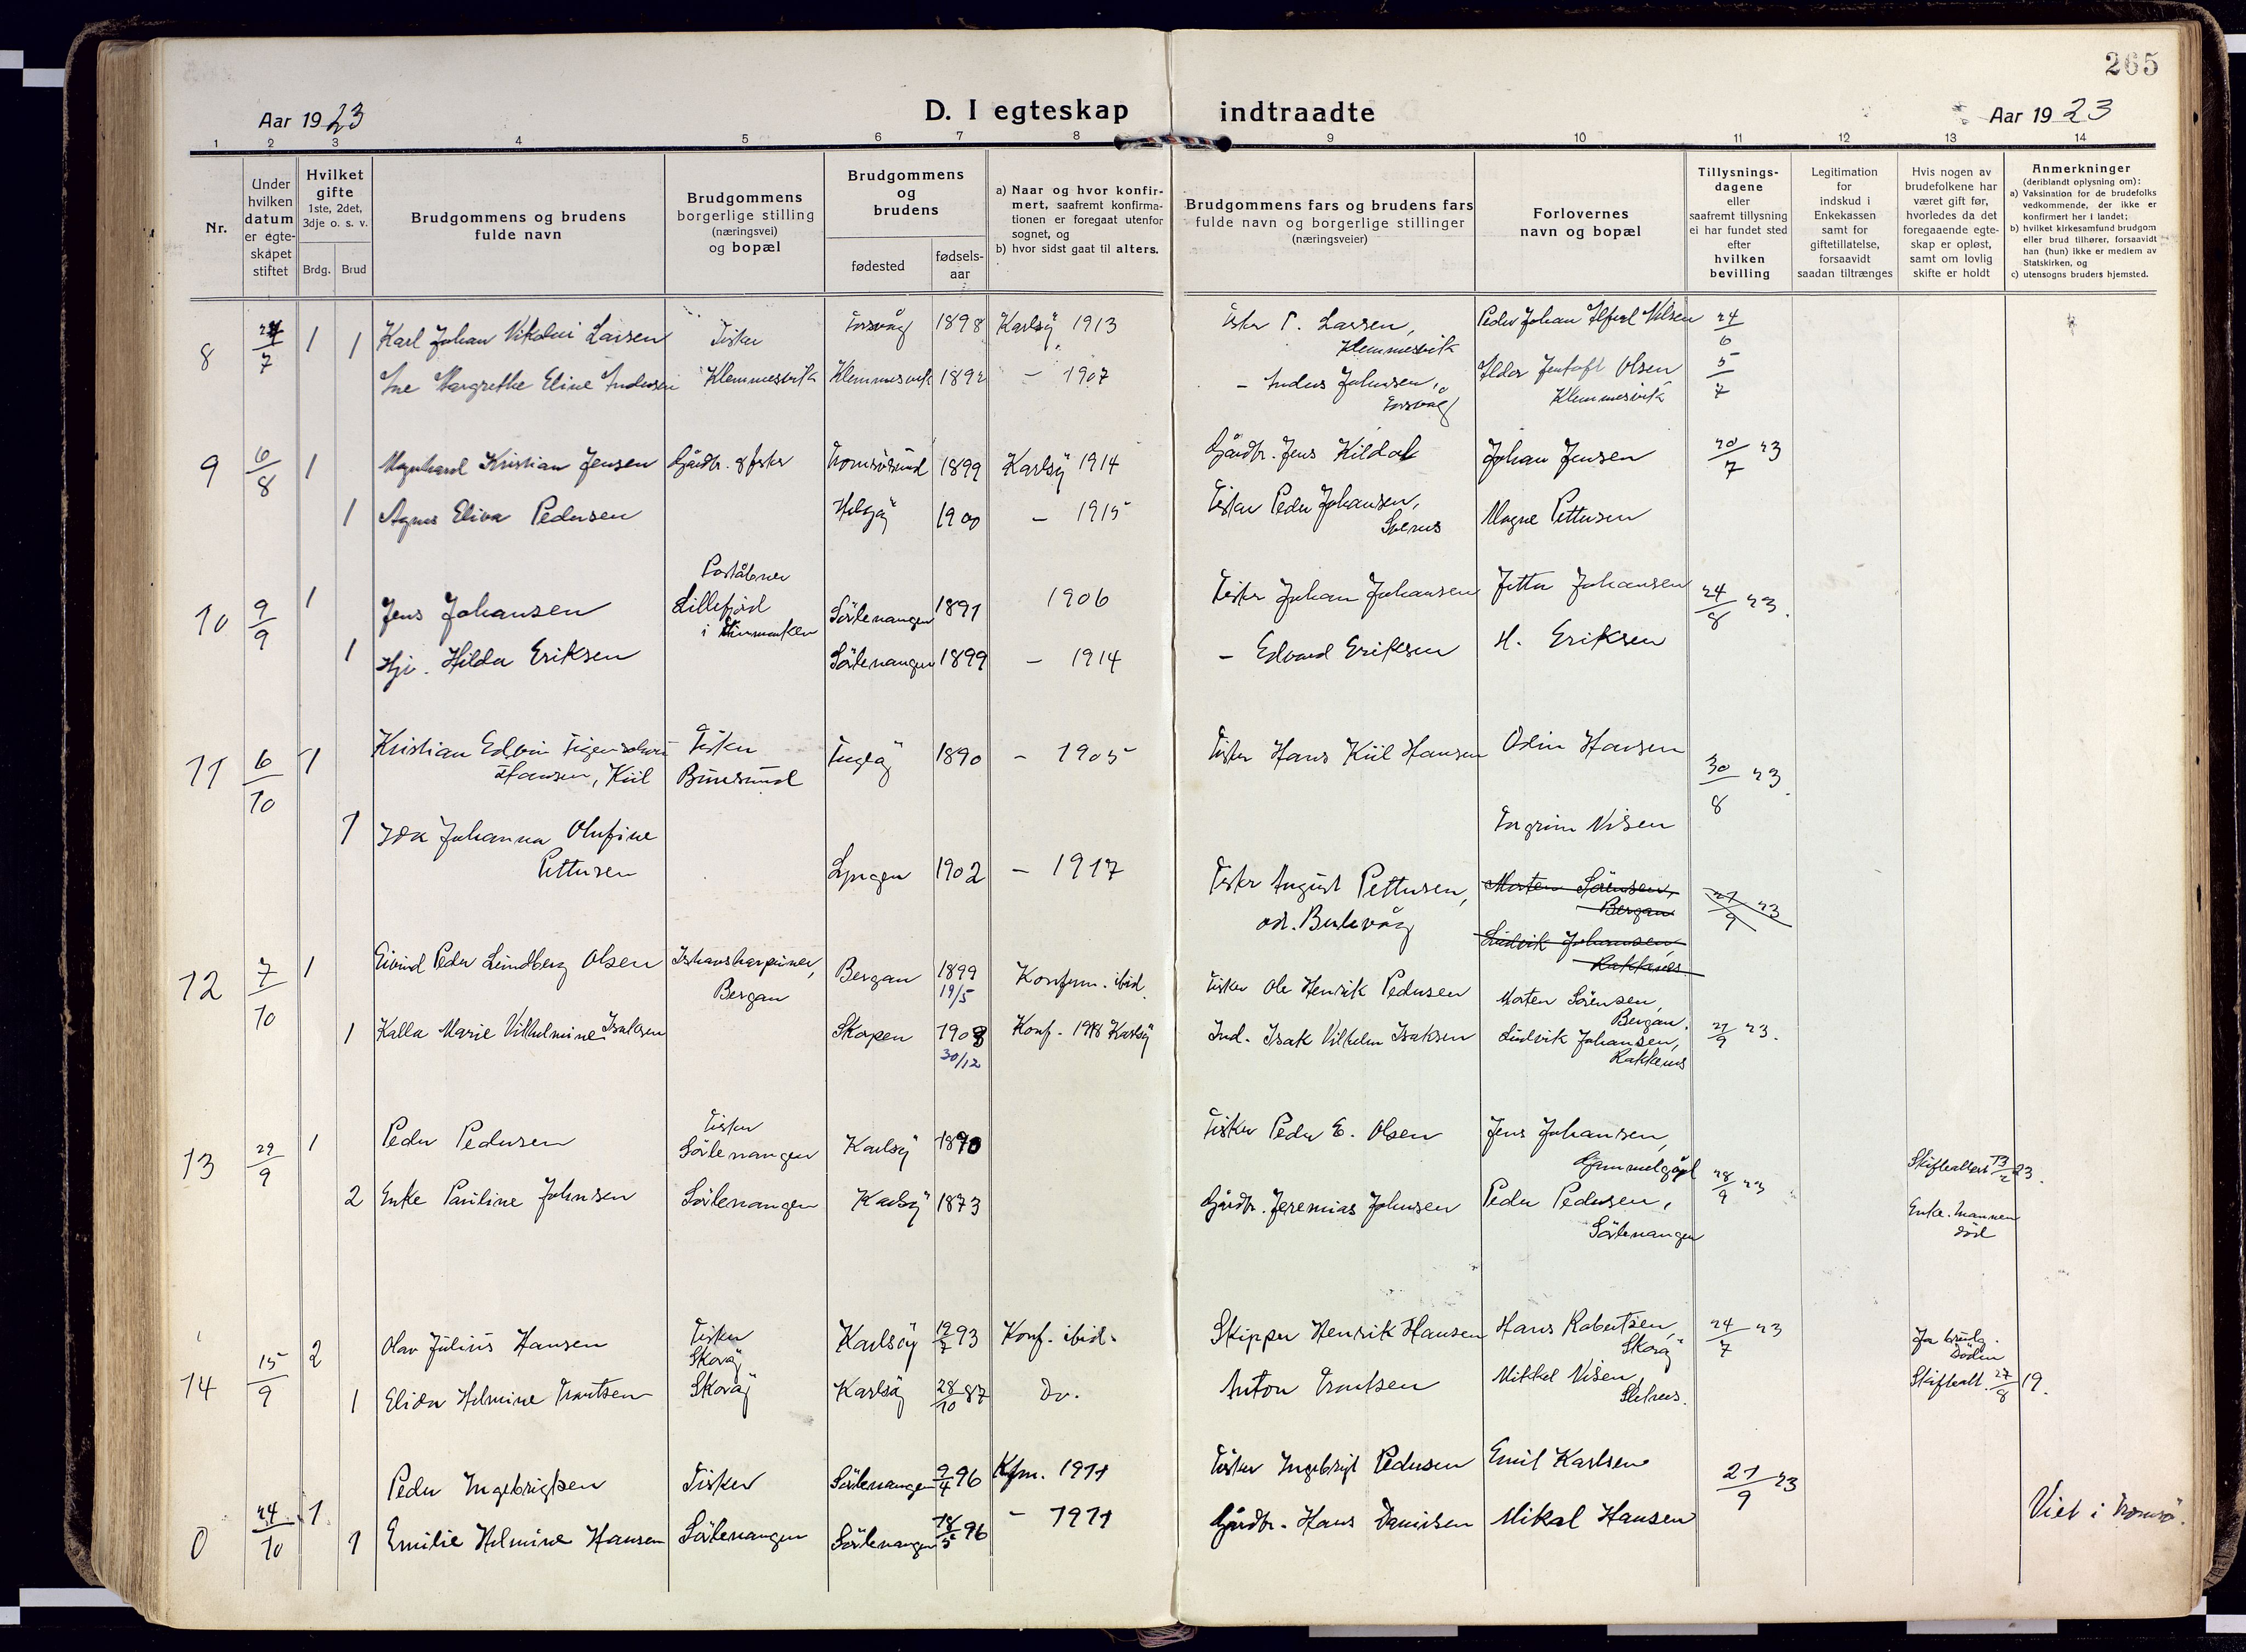 265
D. I egteskap indtraadte
Aar 1923
Aar 1923
1 2 3 4 5 6 7 8 9 10 11 12 13 14
Nr.
Under
hvilken
datum
er egte-
skapet
stiftet
Hvilket
gifte
1ste, 2det,
3dje o. s. v.
Brdg. Brud
Brudgommens og brudens
fulde navn
Brudgommens
borgerlige stilling
(næringsvei)
og bopæl
Brudgommens
og
brudens
fødested
fødsels-
aar
a) Naar og hvor konfir-
mert, saafremt konfirma-
tionen er foregaat utenfor
sognet, og
b) hvor sidst gaat til alters.
Brudgommens fars og brudens fars
fulde navn og borgerlige stillinger
(næringsveier)
Forlovernes
navn og bopæl
Tillysnings-
dagene
eller
saafremt tillysning
ei har fundet sted
efter
hvilken
bevilling
Legitimation
for
indskud i
Enkekassen
samt for
giftetillatelse,
forsaavidt
saadan tiltrænges
Hvis nogen av
brudefolkene har
været gift før,
hvorledes da det
foregaaende egte-
skap er opløst,
samt om lovlig
skifte er holdt
Anmerkninger
(deriblandt oplysning om):
a) Vaksination for de brudefolks
vedkommende, der ikke er
konfirmert her i landet;
b) hvilket kirkesamfund brudgom
eller brud tilhører, forsaavidt
han (hun) ikke er medlem av
Statskirken, og
c) utensogns bruders hjemsted.
8 24/7 1 Karl Johan Nikolai Larsen Fisker Torsvåg 1898 Karlsö 1913 Fisker P. Larsen, Klemmesvik Peder Johan Nilsen 24/6
1 Margrethe Eline Andersen Klemmesvik Klemmesvik 1892 - 1907 - Anders Johansen, Torsvåg Olsen Klemmesvik 5/7
9 6/8 1 Kristian Jensen Gårdbr. & fisker Tromsösund 1899 Karlsö 1914 Gårdbr. Jens Kildal Johan Jensen 20/7 23
1 Agnes Eliva Pedersen Helgöy 1900 - 1915 Fisker Peder Johansen, Magne Pettersen
Poståbner
10 9/9 1 Jens Johansen Lillefjord i Finmarken Sörlenangen 1891 1906 Fisker Johan Johansen Johansen 24/8 23.
1 Hj. Hilda Eriksen Sörlenangen 1899 - 1914 - Edvard Eriksen H. Eriksen
11 6/10 1 Kristian Edvin Figenschau Hansen, Kiil Fisker Burösund Fuglö 1890 - 1905 Fisker Hans Kiil Hansen Odin Hansen 30/8 23.
1 Ida Johanna Olufine Pettersen Lyngen 1902 - 1917 Fisker August Pettersen, Torgrim Nilsen
Morten Sörensen, Bergan 21/9 23
Ludvik Johansen, Rakkenes
12 7/10 1 Eivind Peder Lundberg Olsen Ishavsharpuner, Bergan Bergan 1899 19/5 Konfirm. ibid. Fisker Ole Henrik Pedersen Morten Sörensen, Bergan.
1 Kalla Marie Vilhelmine Isaksen Skogen 1903 30/12 Konf. 1918 Karlsö Ind. Isak Vilhelm Isaksen Ludvik Johansen, Rakkenes 21/9 23.
13 29/9 1 Peder Pedersen Fisker Sörlenangen Karlsö 1870 Fisker Peder E. Olsen Jens Johansen, Gammelgård 28/9 23 Skifteattest 13/2 23.
2 Enke Pauline Johnsen Sörlenangen Karlsö 1873 Gårdbr. Jeremias Johnsen Peder Pedersen, Sörlenangen Enke. Mannen död
14 15/9 2 Olav Julius Hansen Fisker Skorøy Karlsöy 12/7 93 Konf. ibid. Skipper Henrik Hansen Hans Robertsen, Skorøy 24/7 23
1 Elida Helmine Trontsen Skorøy Karlsöy 28/10 87 Do. Anton Trontsen Mikkel Nilsen, Skifteatt. 27/8 19.
0 24/10 1 Peder Ingebrigtsen Fisker Sörlenangen 9/4 96 Kfm. 1911 Fisker Ingebrigt Pedersen Emil Karlsen 21/9 23
1 Emilie Helmine Hansen Sörlenangen Sörlenangen 18/5 96 - 1911 Gårdbr. Hans Danielsen Mikal Hansen Viet i Tromsö.